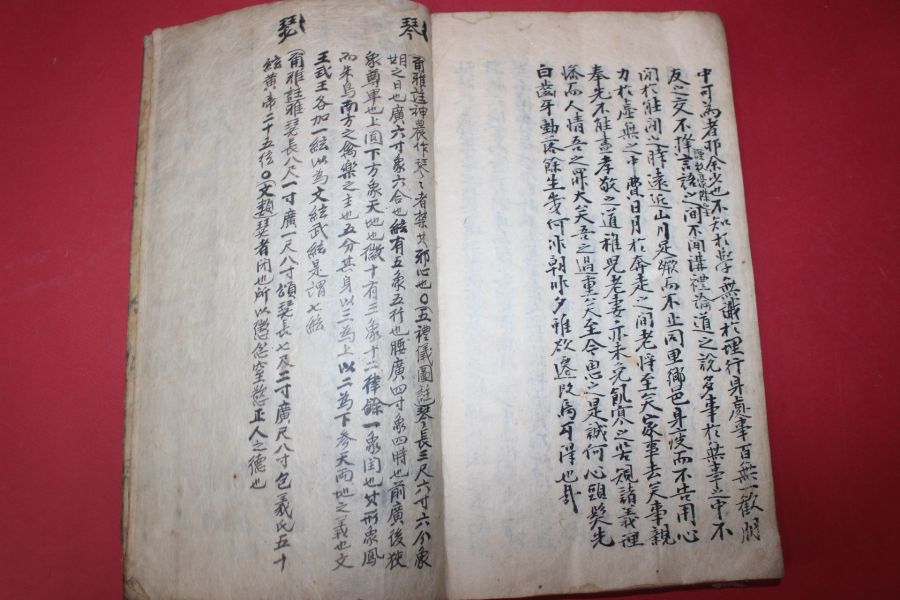 中可為者耶余少也不知於學無識於理行身處事百無一歡朋
友之交不擇言語之間不聞講禮論道之說多事於無事之中不
聞於能聞之時遠近山川足蹶而不止同里鄉邑身疲而不告用心
力於虛無之中費日月於奔走之間老將至矣家事去矣事親
奉先不能盡孝敬之道稚兒老妻亦未免飢寒之苦規諸義理
參而人情吾之罪大矣吾之過重矣至今思之是誠何心頭髮先
白齒牙動落餘生幾何非朝卽夕雖欲遷改焉可得也哉
琴
爾雅註神農作琴琴者禁其邪心也〇五禮儀圖註琴長三尺六寸六分象
朞之日也廣六寸象六合也絃有五象五行也腰廣四寸象四時也前廣後狹
象尊卑也上圓下方象天地也徽十有三象十二律餘一象閏也其形象鳳
而朱鳥南方之禽樂之主也五分其身以三為上以二為下參天兩地之義也文
王武王各加一絃以為文絃武絃是謂七絃
瑟
爾雅註雅瑟長八尺一寸廣一尺八寸頌瑟長七尺二寸廣尺八寸包羲氏五十
絃黃帝二十五絃〇文類瑟者閉也所以懲忿窒慾正人之德也